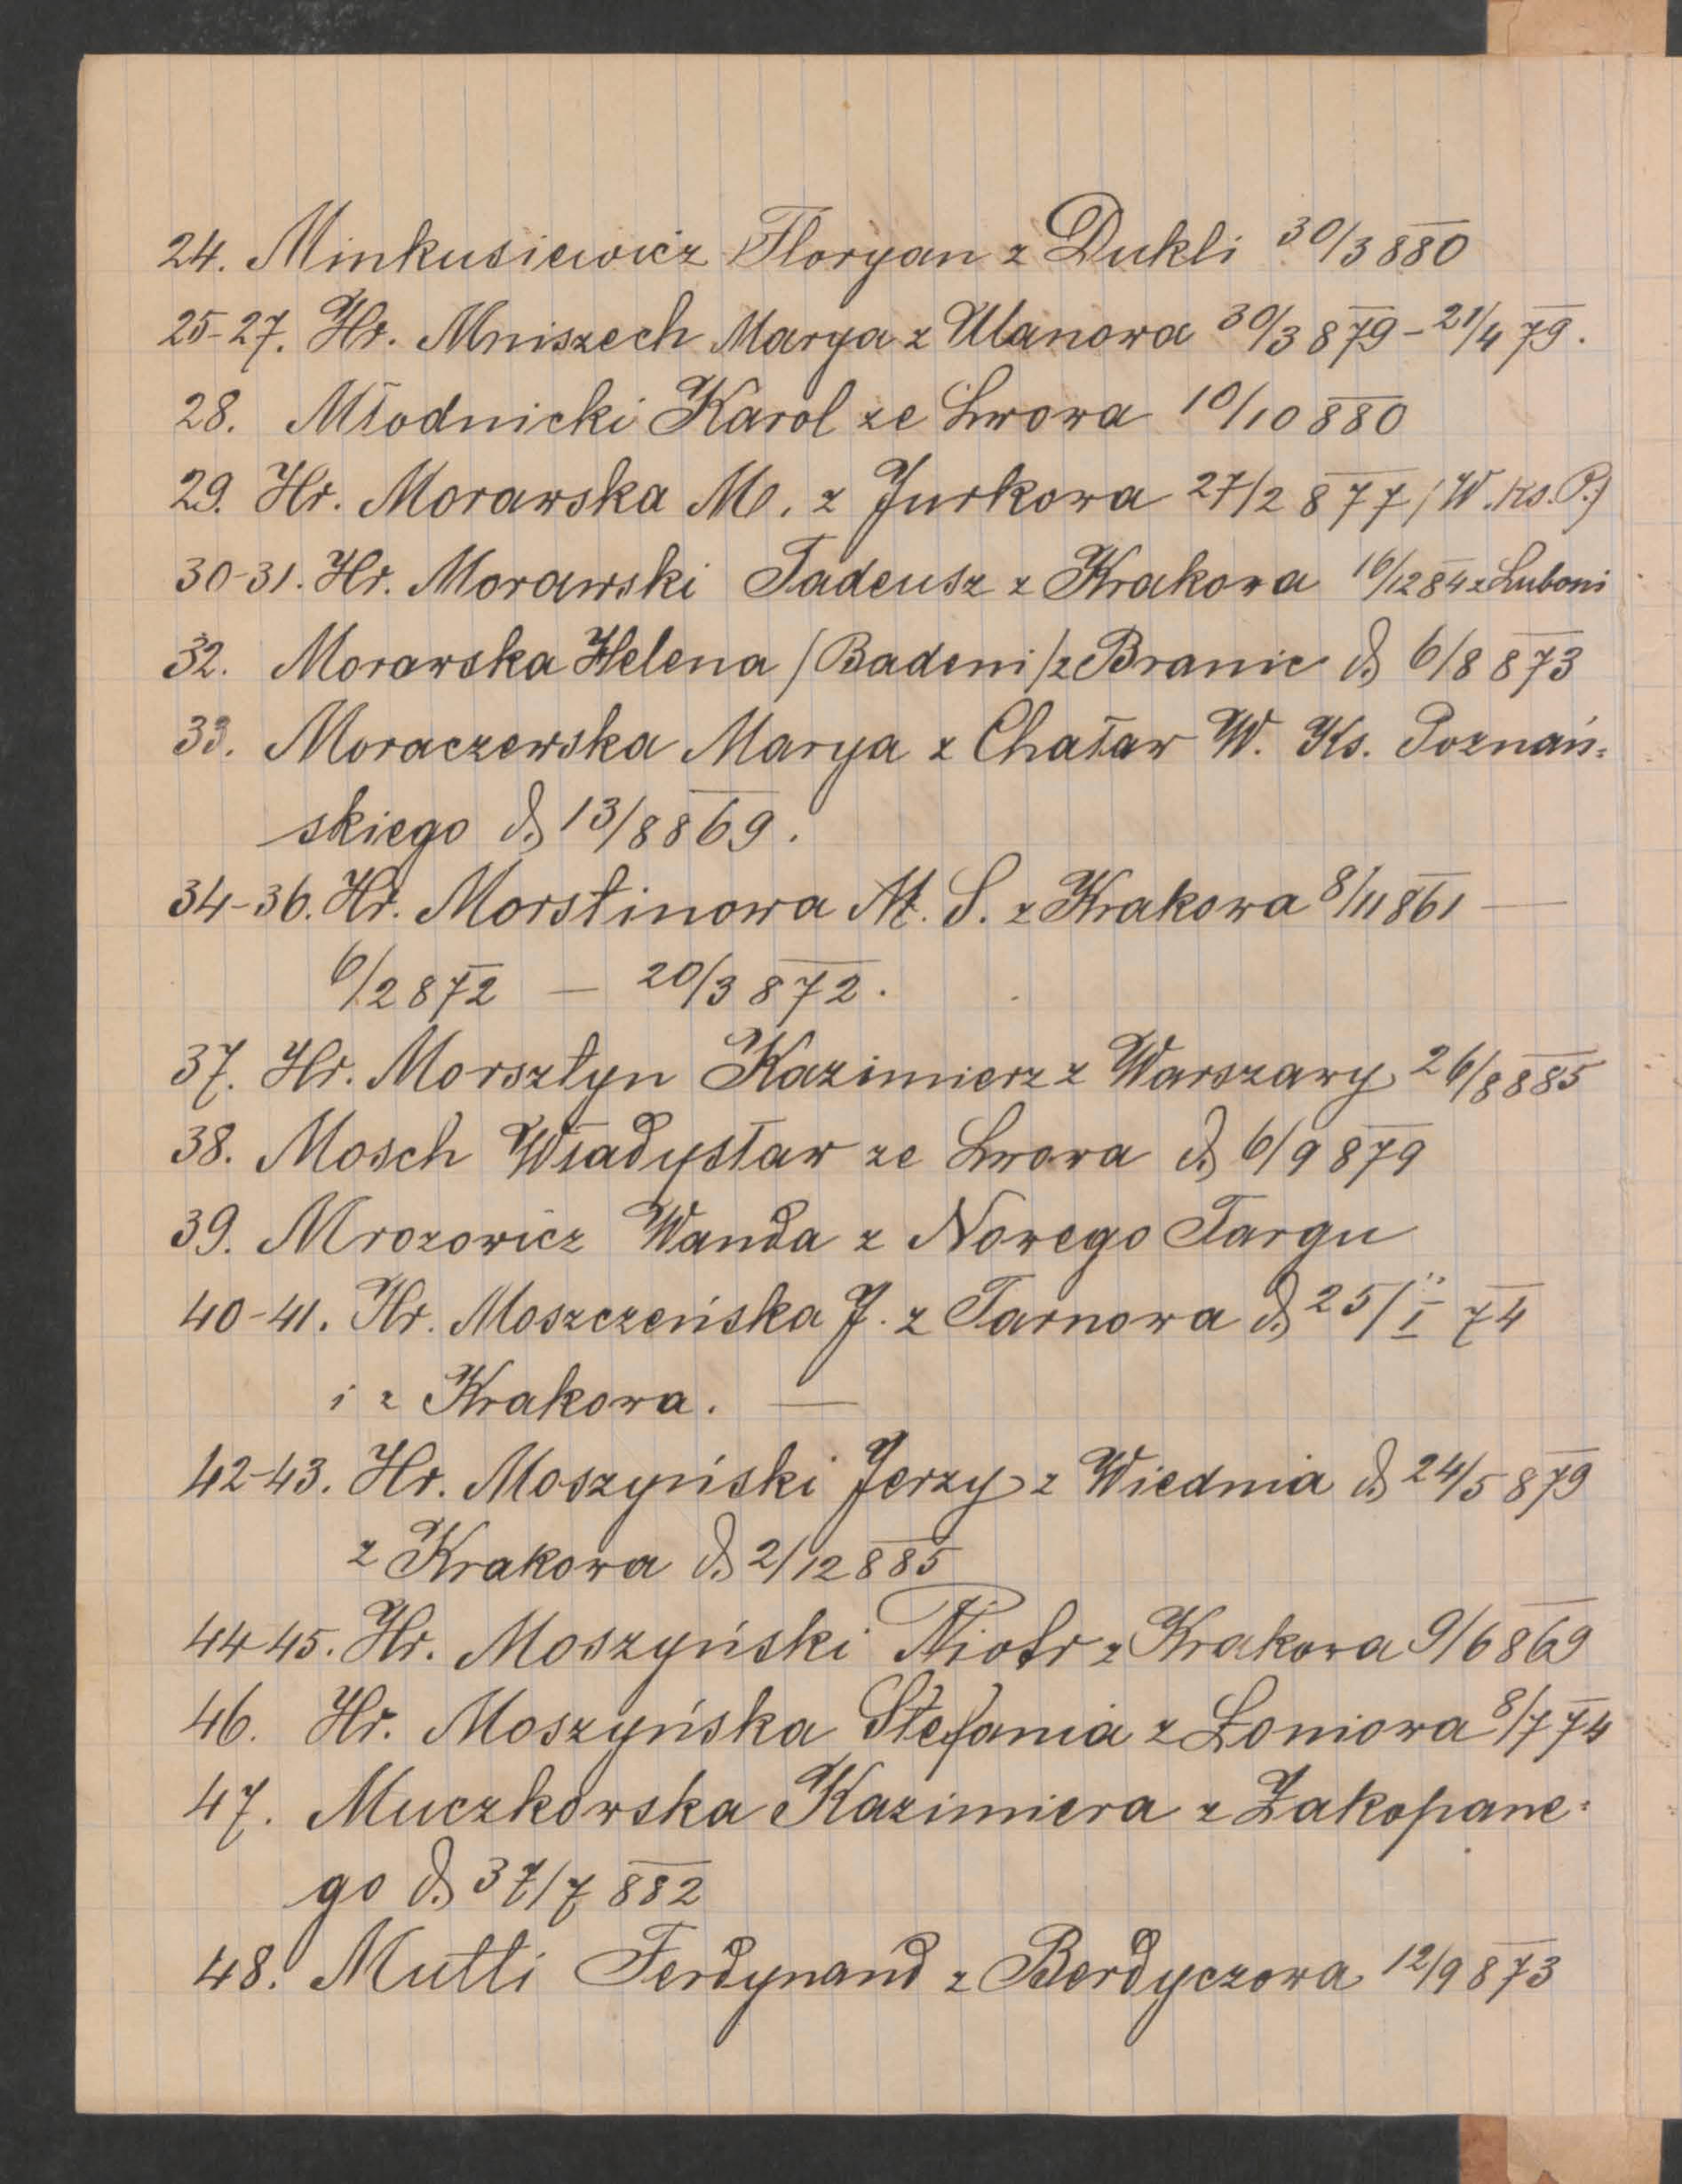 24. Minkusiewicz Floryan z Dukli 30/3 880
25-27. Hr. Mniszech Marya z Ulanowa 30/3 879 - 21/4 79.
28. Młodnicki Karol ze Lwowa 10/10 880
29. Hr. Morawska M. z Jurkowa 27/2 877 / W. Ks. P.)
30-31. Hr. Morawski Tadeusz z Krakowa 16/12 84 z Luboni
32. Morawska Helena /Badeni/ z Branic d. 6/8 873
33. Moraczewska Marya z Chaław W. Ks. Poznań=
skiego d. 13/8 869.
34-36. Hr. Morstinowa M. S. z Krakowa 8/11 861 —
6/2 872 — 20/3 872.
37. Hr. Morsztyn Kazimierz z Warszawy 26/8 885
38. Mosch Władysław ze Lwowa d. 6/9 879
39. Mrozowicz Wanda z Nowego Targu
40-41. Hr. Moszczeńska J. z Tarnowa d. 25/I 74
i z Krakowa. —
42-43. Hr. Moszyński Jerzy z Wiednia d. 24/5 879
z Krakowa d. 2/12 885
44-45. Hr. Moszyński Piotr z Krakowa 9/6 869
46. Hr. Moszyńska Stefania z Łoniowa 8/7 74
47. Muczkowska Kazimiera z Zakopane=
go d. /7 882
48. Mutti Ferdynand z Berdyczowa 12/9 873